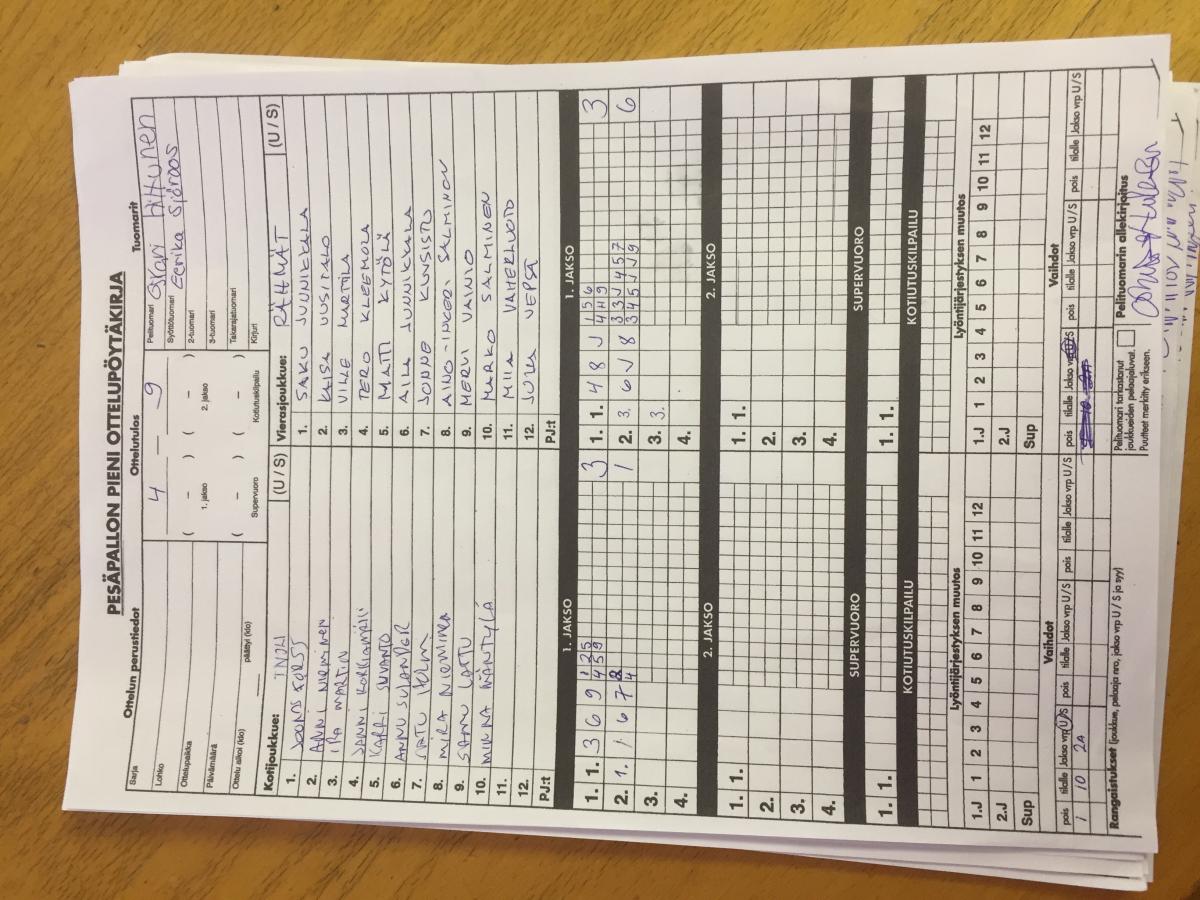 PESÄPALLON PIENI OTTELUPÖYTÄKIRJA
Ottelun perustiedot Ottelutulos Tuomarit
Sarja
Lohko 4 — 9 Pelituomari Hiltunen
Ottelupaikka ( – ) ( – ) Syöttötuomari Eerika Sjöroos
1. jakso 2. jakso 2-tuomari
Päivämäärä 3-tuomari
( – ) ( – ) Takarajatuomari
Ottelu alkoi (klo) päättyi (klo) Supervuoro Kotiutuskilpailu Kirjuri
Kotijoukkue: (U / S) Vierasjoukkue: RÄHMÄT (U / S)
1. 1. SAKU JUUNIKKALA
2. ANNI NIEMINEN 2. KAISA UUSITALO
3. MARTIN 3. VILLE MARTTILA
4. 4. TERO KLEEMOLA
5. KARRI SUVANTO 5. MATTI KYTÖLÄ
6. ANNU SULANDER 6. AILA JUUNIKKALA
7. SATU 7. JONNE KUNSISTO
8. MIRA NIEMINEN 8. AINO-INKERI SALMINEN
9. SANNU LATTU 9. MERVI VAINIO
10. MINNA MÄNTYLÄ 10. MARKO SALMINEN
11. 11. MIIA VAHERLUOTO
12. 12. JUKKA VEPSÄ
PJ:t PJ:t
1. JAKSO 1. JAKSO
1. 1. 3 6 9 1 2 5 3 1. 1. 4 8 J 1 5 6 3
4 5 9 4 4 9
2. 1. 1 6 7 1 2. 3. 6 J 8 3 3 J 4 5 7 6
4 3 4 5 J J 9
3. 3. 3.
4. 4.
2. JAKSO 2. JAKSO
1. 1. 1. 1.
2. 2.
3. 3.
4. 4.
SUPERVUORO SUPERVUORO
1. 1. 1. 1.
KOTIUTUSKILPAILU KOTIUTUSKILPAILU
Lyöntijärjestyksen muutos Lyöntijärjestyksen muutos
1.J 1 2 3 4 5 6 7 8 9 10 11 12 1.J 1 2 3 4 5 6 7 8 9 10 11 12
2.J 2.J
Sup Sup
Vaihdot Vaihdot
pois tilalle Jakso vrp U/S pois tilalle Jakso vrp U/S pois tilalle Jakso vrp U/S pois tilalle Jakso vrp U/S pois tilalle Jakso vrp U/S pois tilalle Jakso vrp U/S
1 10 2A
Rangaistukset (joukkue, pelaaja nro, jakso vrp U / S ja syy) Pelituomari tarkastanut joukkueiden pelaajaluvat. Puutteet merkitty erikseen. Pelituomarin allekirjoitus